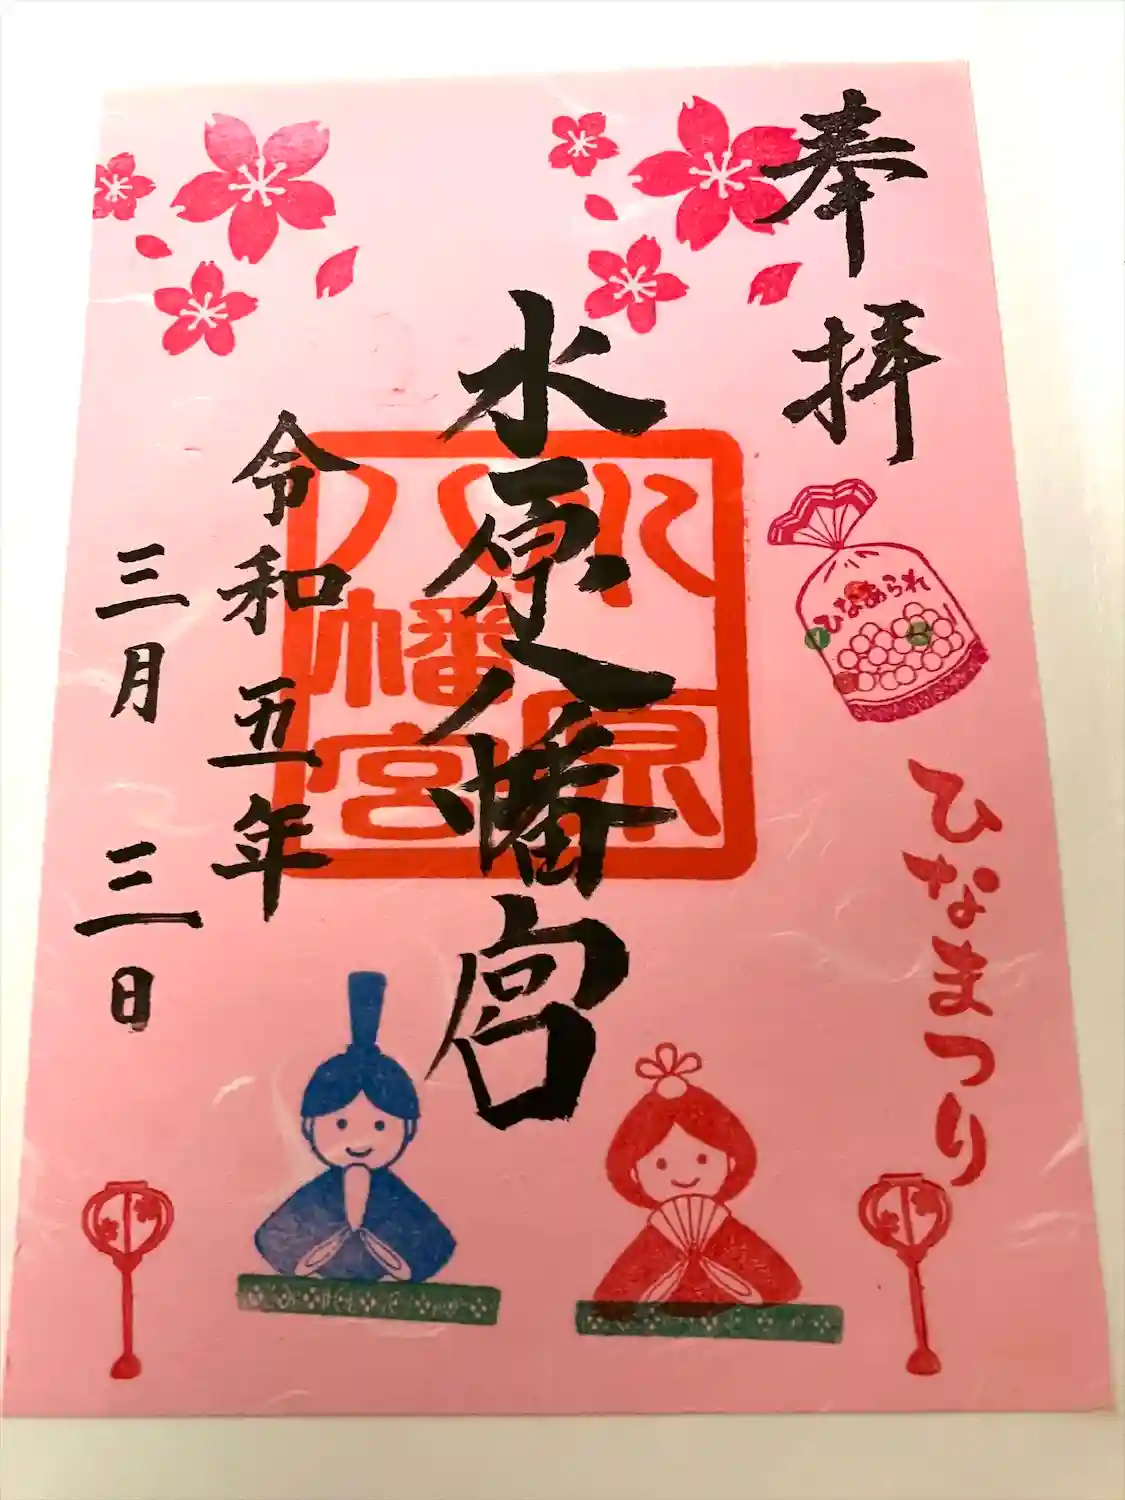 奉拝
ひなあられ
ひなまつり
水原八幡宮
水原
八幡宮
令和五年
三月三日